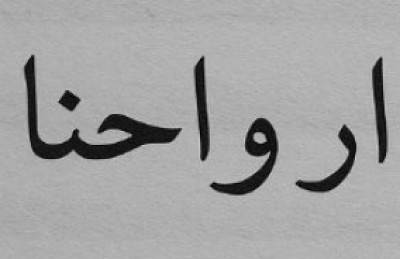 ارواحنا